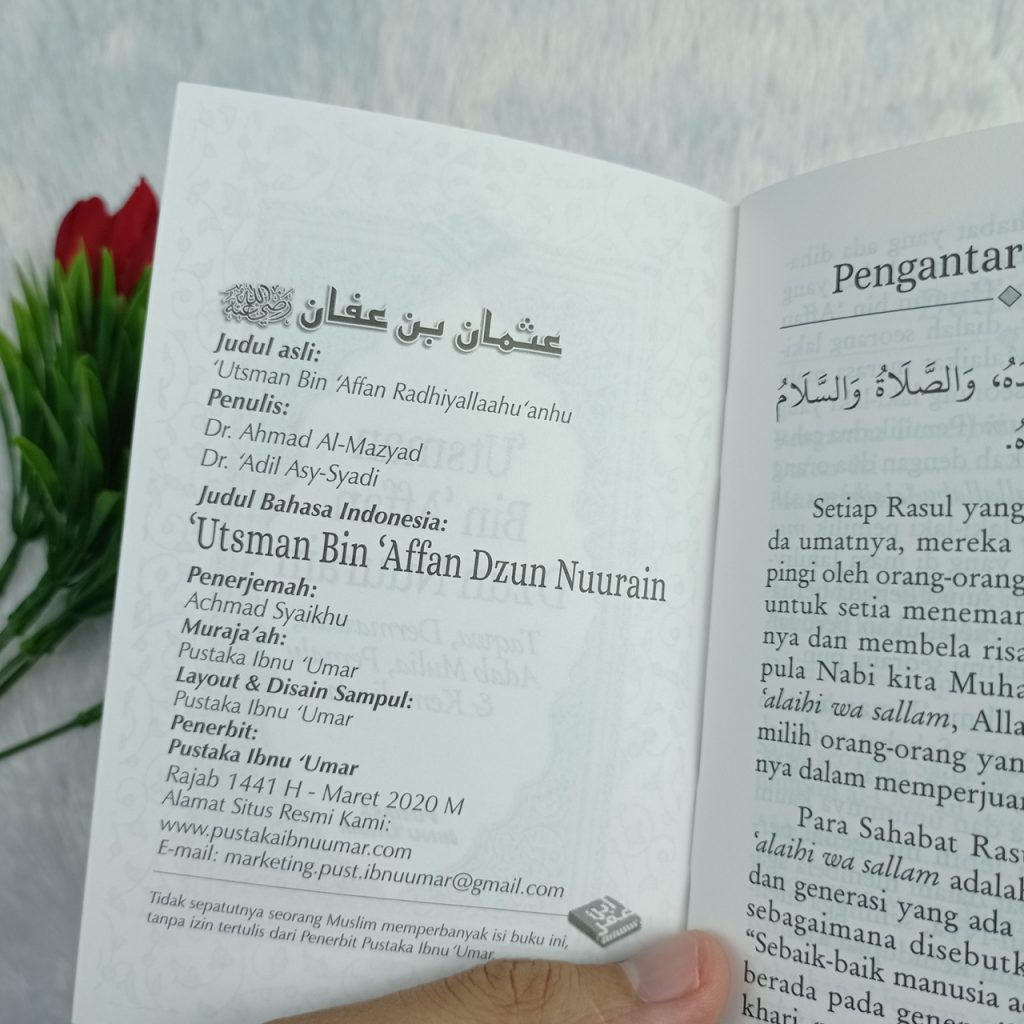 عثمان بن عفان رضي الله عنه
Judul asli:
‘Utsman Bin ‘Affan Radhiyallaahu‘anhu
Penulis:
Dr. Ahmad Al-Mazyad
Dr. ‘Adil Asy-Syadi
Judul Bahasa Indonesia:
‘Utsman Bin ‘Affan Dzun Nuurain
Penerjemah:
Achmad Syaikhu
Muraja’ah:
Pustaka Ibnu ‘Umar
Layout & Disain Sampul:
Pustaka Ibnu ‘Umar
Penerbit:
Pustaka Ibnu ‘Umar
Rajab 1441 H - Maret 2020 M
Alamat Situs Resmi Kami:
www.pustakaibnuumar.com
E-mail: marketing.pust.ibnuumar@gmail.com
Tidak sepatutnya seorang Muslim memperbanyak isi buku ini,
tanpa izin tertulis dari Penerbit Pustaka Ibnu ‘Umar.
ابن عمر
Pengantar
وَالصَّلَاةُ وَالسَّلَامُ
Setiap Rasul yang
da umatnya, mereka
pingi oleh orang-orang
untuk setia meneman
nya dan membela risa
pula Nabi kita Muha
‘alaihi wa sallam, Alla
milih orang-orang yan
nya dalam memperjuan
Para Sahabat Rasu
‘alaihi wa sallam adalah
dan generasi yang ada
sebagaimana disebutk
“Sebaik-baik manusia ad
berada pada gene
khari